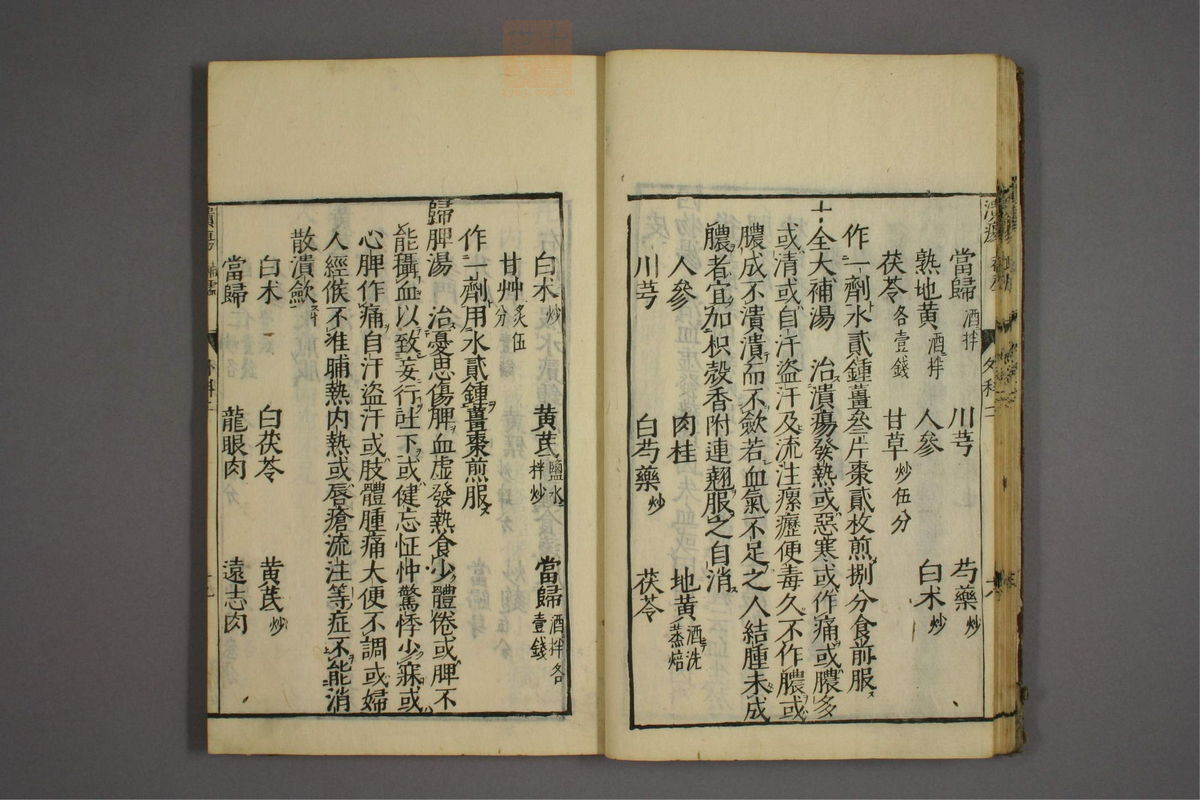 當歸酒拌 川芎 芍藥炒
熟地黃酒拌 人參 白朮炒
茯苓各壹錢 甘草炒伍分
作一劑水貳鍾薑叄片棗貳枚煎捌分食前服
十全大補湯 治潰瘍發熱或惡寒或作痛或膿多
或清或自汗盜汗及流注瘰癧便毒久不作膿或
膿成不潰潰而不歛若血氣不足之人結腫未成
膿者宜加枳殼香附連翹服之自消
人參 肉桂 地黃酒洗蒸焙
川芎 白芍藥炒 茯苓
白朮炒 黃芪鹽水拌炒 當歸酒拌各壹錢
甘艸炙伍分
作一劑用水貳鍾薑棗煎服
歸脾湯 治憂思傷脾血虛發熱食少體倦或脾不
能攝血以致妄行吐下或健忘怔忡驚悸少寐或
心脾作痛自汗盜汗或肢體腫痛大便不調或婦
人經候不准晡熱内熱或唇瘡流注等症不能消
散潰歛
白朮 白茯苓 黃芪炒
當歸 龍眼肉 遠志肉
潰瘍 補虛 外科二